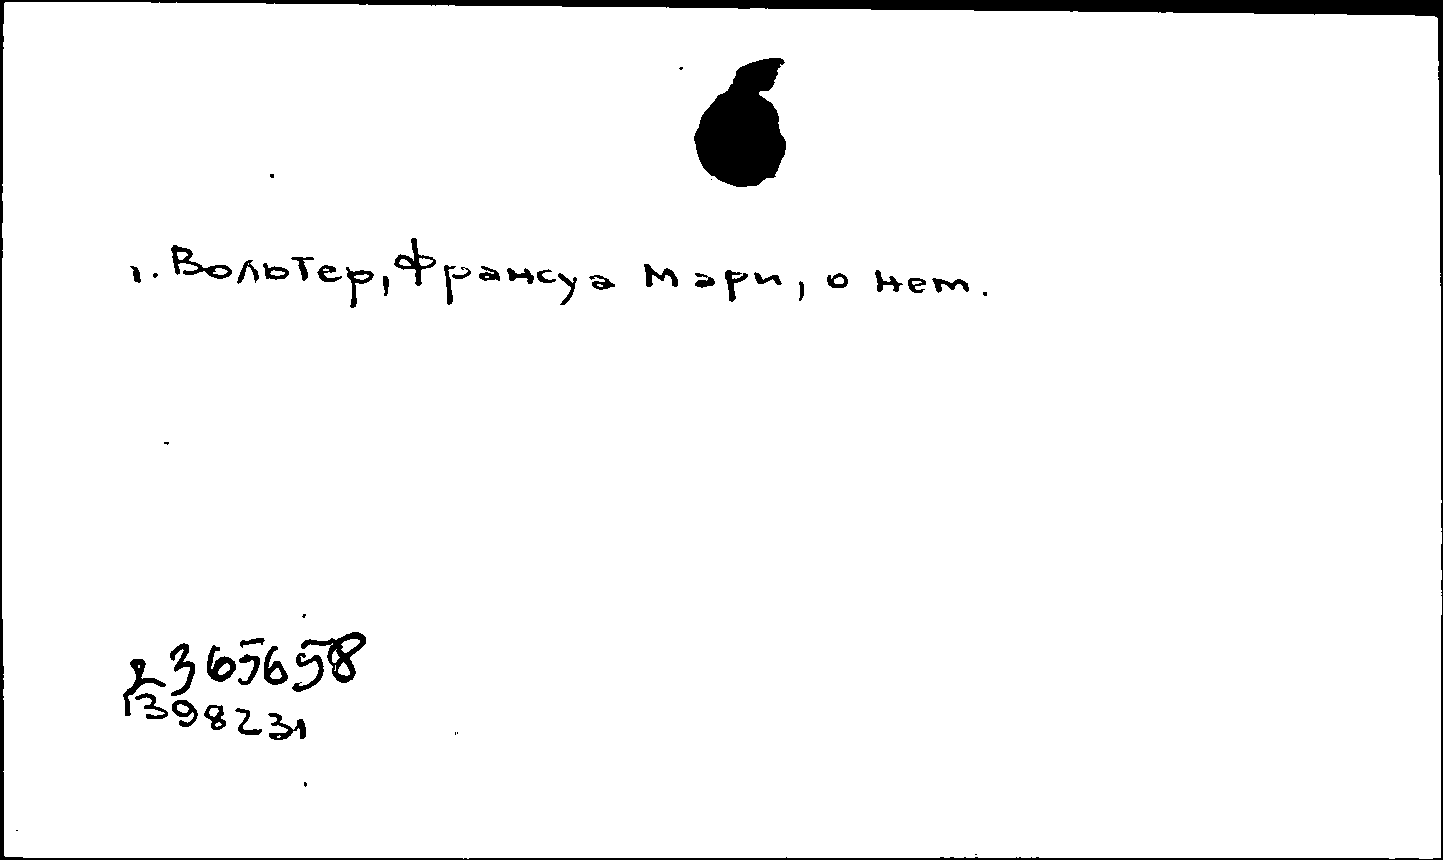 1. Вольтер, Франсуа Мари, о нем.
2365658
1398231